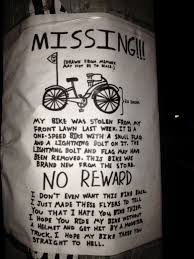 MISSING!!!
(DRAWN FROM MEMORY
MAY NOT BE TO SCALE)
MY BIKE WAS STOLEN FROM MY
FRONT LAWN LAST WEEK. IT IS A
ONE-SPEED BIKE WITH A SKULL FLAG
AND A LIGHTNING BOLT ON IT. THE
LIGHTNING BOLT AND FLAG MAY HAVE
BEEN REMOVED. THIS BIKE WAS
BRAND NEW FROM THE STORE.
NO REWARD
I DON'T EVEN WANT THIS BIKE BACK.
I JUST MADE THESE FLYERS TO TELL
YOU THAT I HATE YOU BIKE THIEF.
I HOPE YOU RIDE MY BIKE WITHOUT
A HELMET AND GET HIT BY A MONSTER
TRUCK. I HOPE MY BIKE TAKES YOU
STRAIGHT TO HELL.